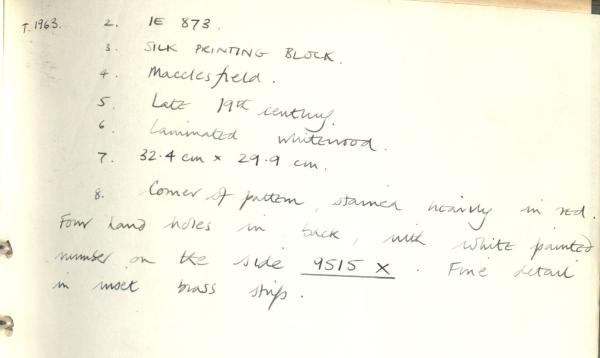 T.1963. 2. IE 873.
3. SILK PRINTING BLOCK.
4. Macclesfield.
5. Late 19th century.
6. Laminated whitewood.
7. 32.4 cm × 29.9 cm.
8. Corner of pattern, stained heavily in red.
Four hand holes in back, with white painted
number on the side 9515 X. Fine detail
in inset brass strip.